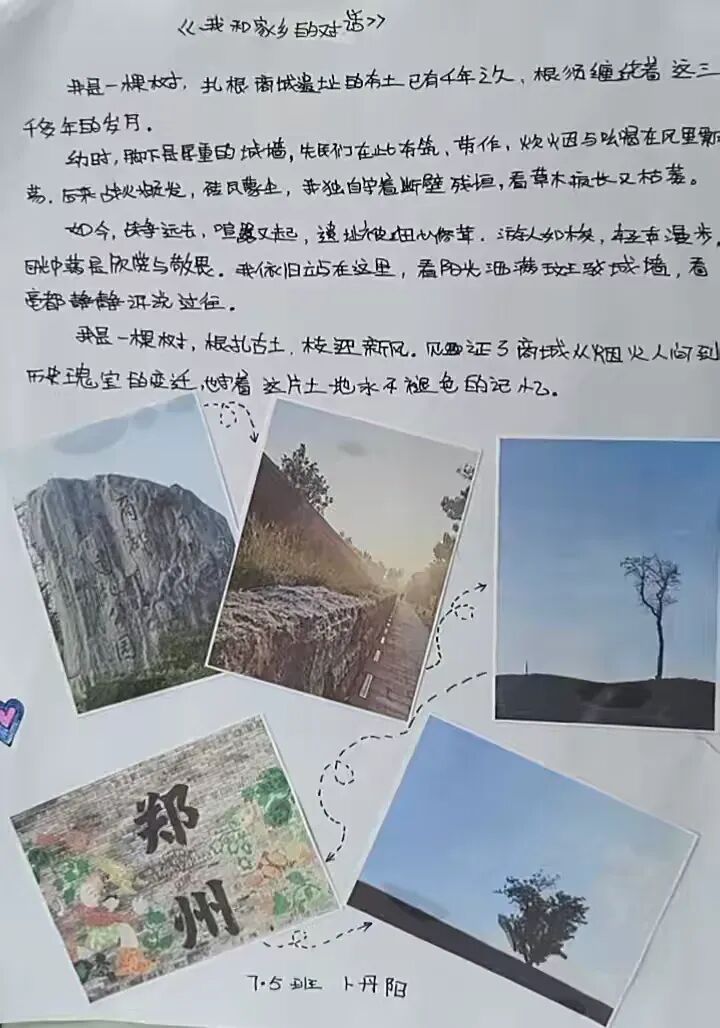 《我和家乡的对话》
我是一棵树，扎根商城遗址的本土已有千年之久，根须缠绕着这三
千多年的岁月。
幼时，脚下是厚重的城墙，先民们在此夯筑、劳作，炊火烟与吆喝在风里飘
荡，后来战火频发，砖瓦蒙尘，我独自守着断壁残垣，看草木疯长又枯萎。
如今，战争远去，喧嚣又起，遗址被细心修葺，游人如梭，轻声漫步，
眼中满是欣赏与敬畏。我依旧站在这里，看阳光洒满城墙，看
亳都静静流淌过往。
我是一棵树，根扎古土，枝迎新风。见证了商城从烟火人间到
历史瑰宝的变迁，守着这片土地永不褪色的记忆。
商都
遗址公园
郑
州
7.5班 卜丹阳